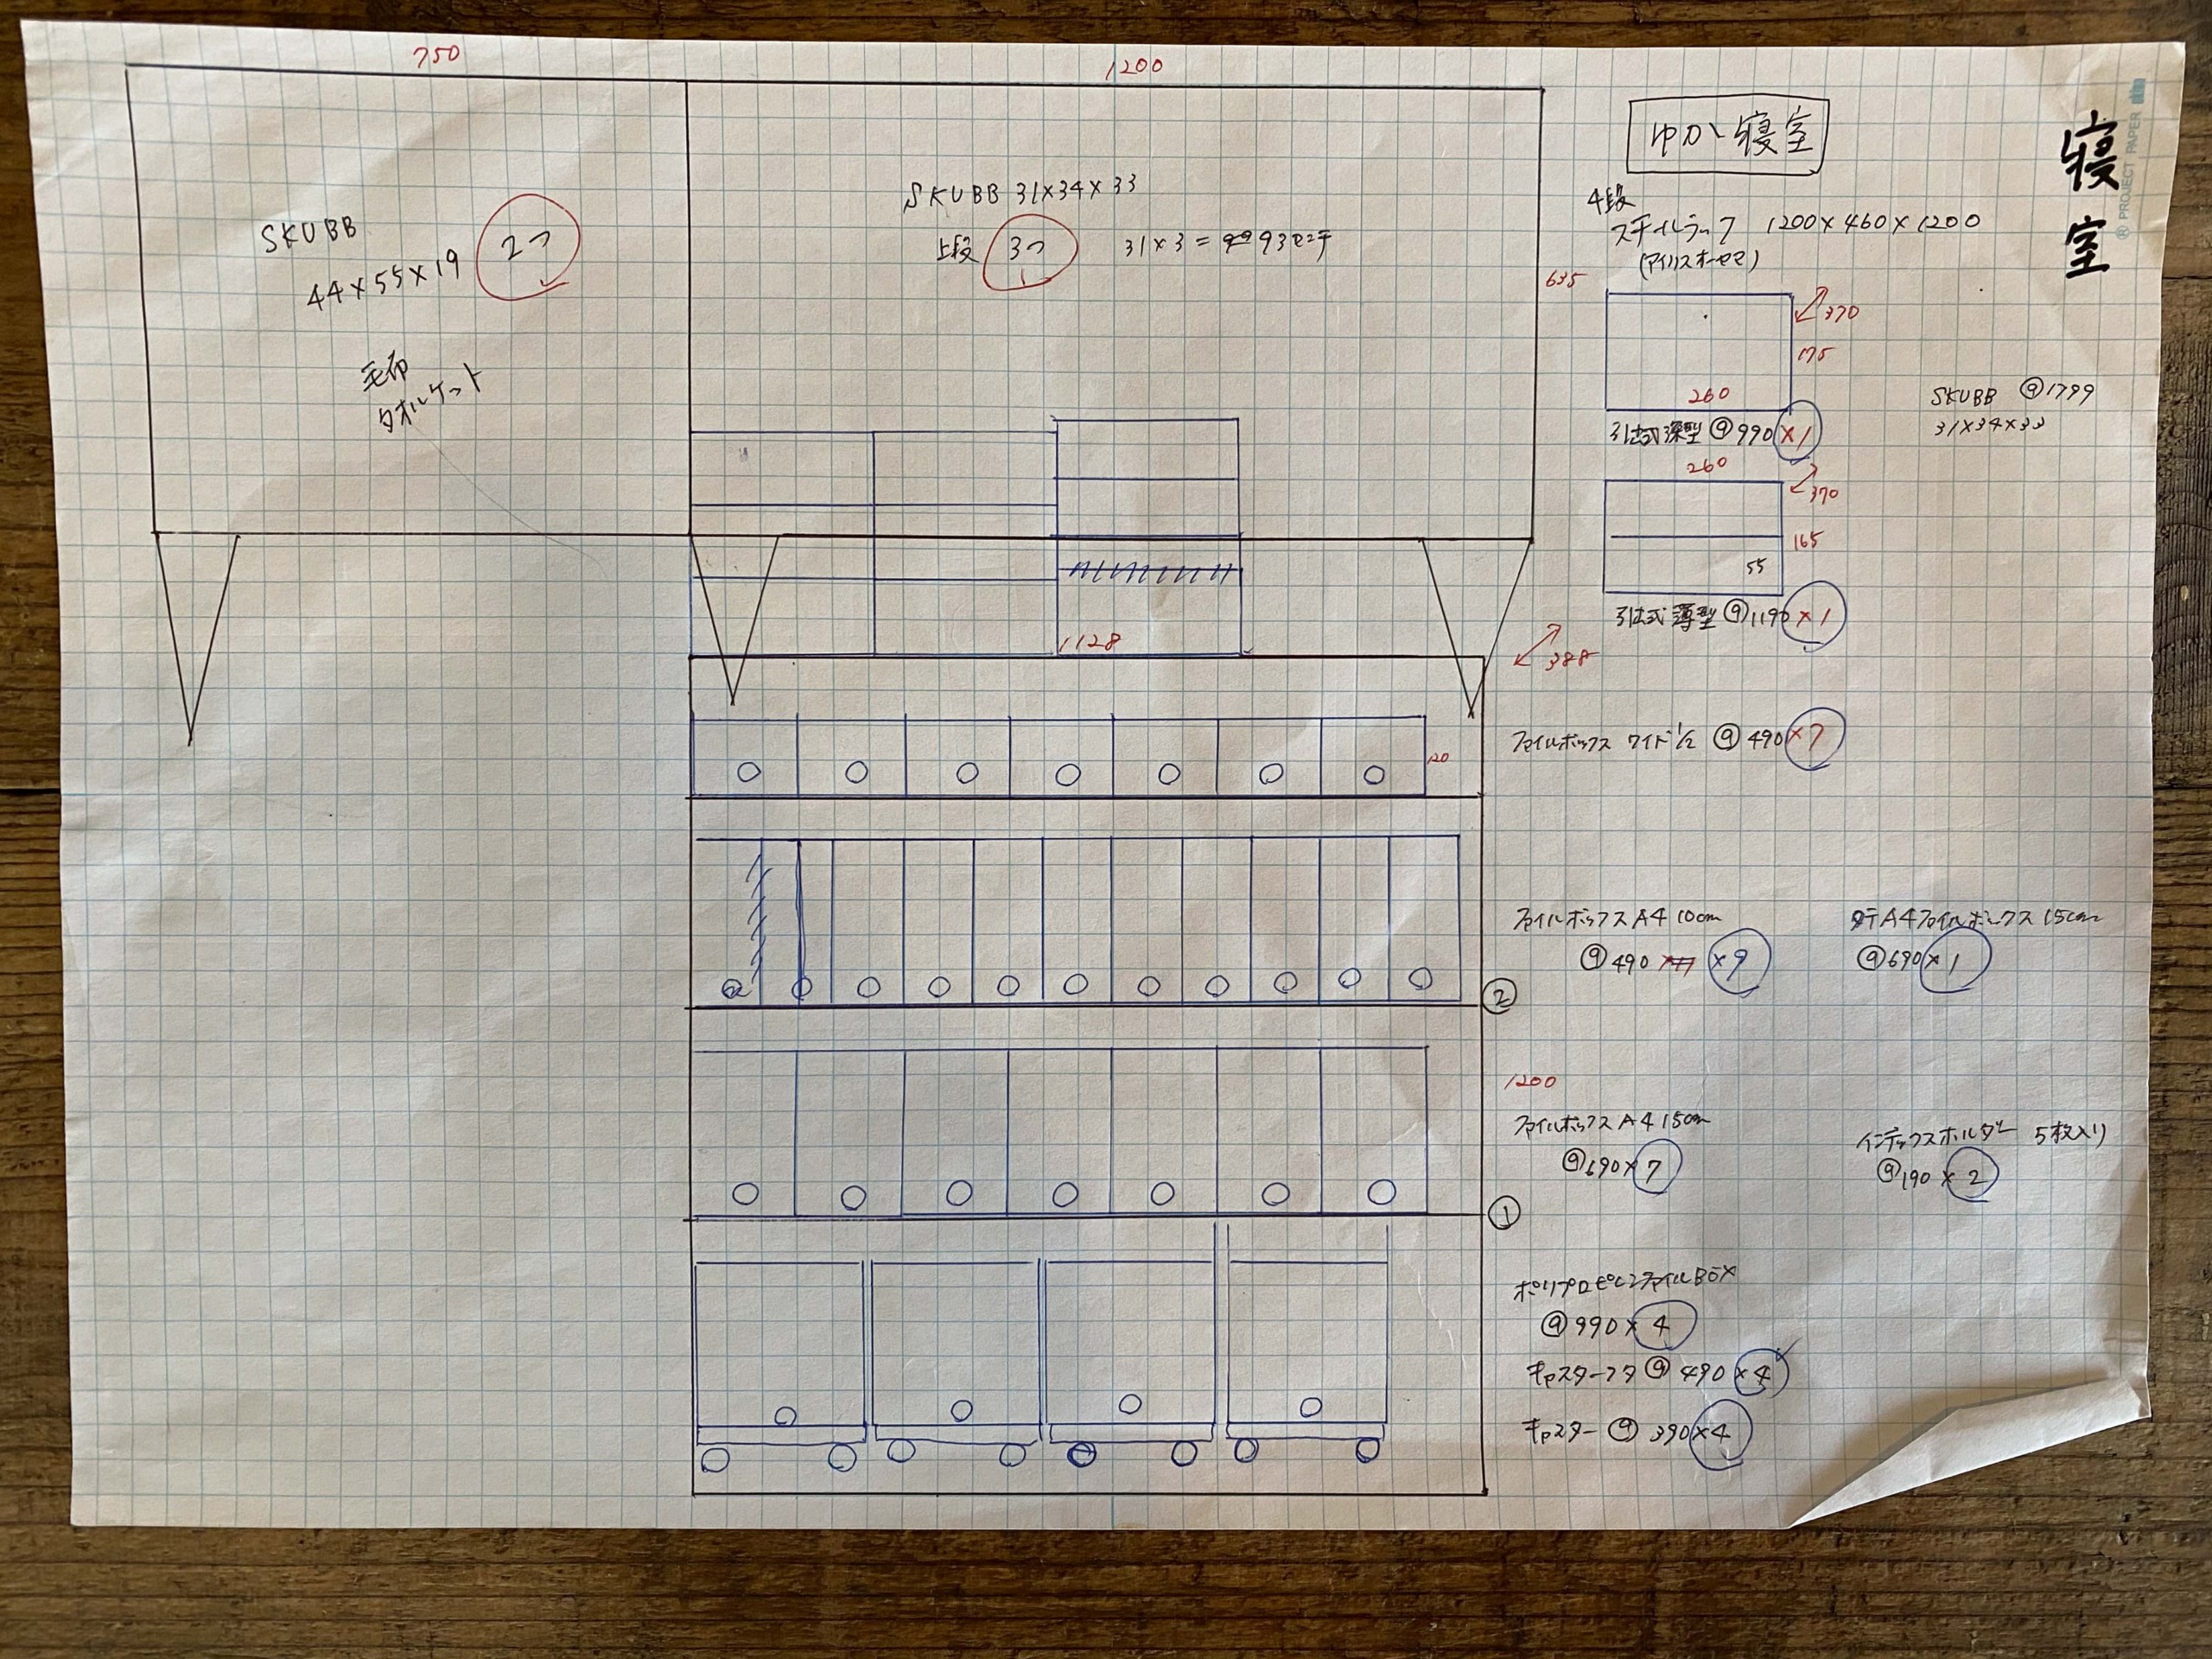 750
1200
SKUBB
44×55×19 2つ
毛布
タオルケット
SKUBB 31×34×33
上段 3つ 31×3= 93センチ
635
1128
388
120
②
1200
①
寝室
® PROJECT PAPER
ゆか 寝室
4段
スチールラック 1200×460×1200
(アイリスオーヤマ)
370
175
260
引出式 深型 @990 ×1
260
370
165
55
引出式 薄型 @1190 ×1
SKUBB @1799
31×34×33
ファイルボックス ワイド 1/2 @490 ×7
ファイルボックス A4 10cm
@490 ×9
A4ファイルボックス 15cm
@690×1
ファイルボックス A4 15cm
@690×7
インデックスホルダー 5枚入り
@190×2
ポリプロピレンファイルBOX
@990×4
キャスターフタ @490×4
キャスター @390×4